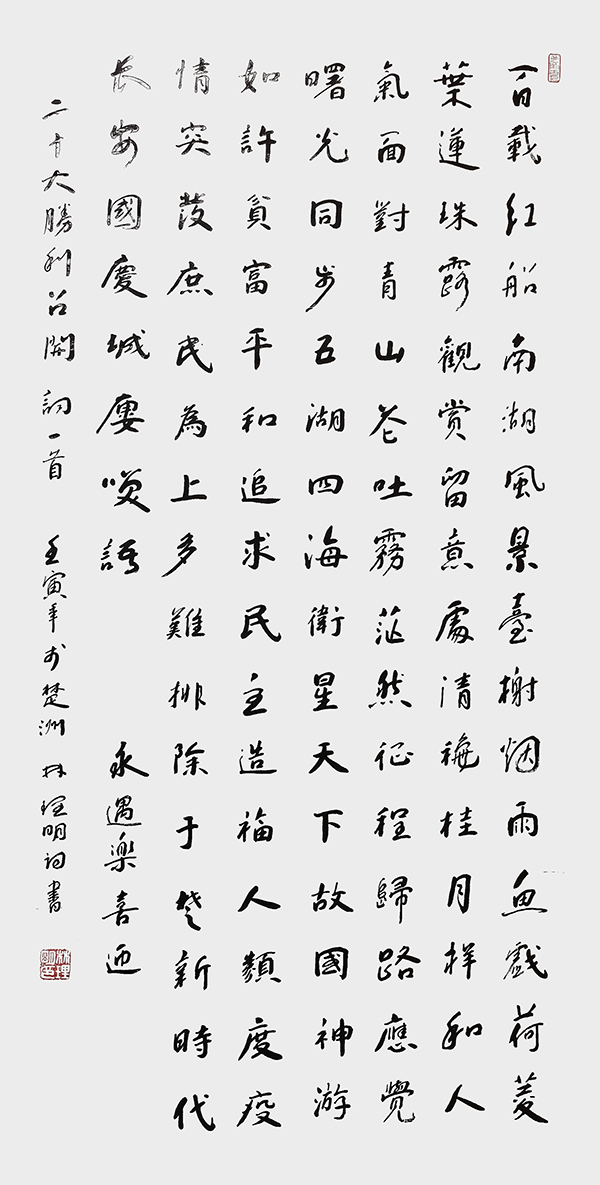 百載紅船南湖風景臺榭烟雨魚戲荷菱
葉蓮珠露觀賞留意處清桂月祥和人
氣面對青山花吐霧茫然征程歸路應覺
曙光同步五湖四海衛星天下故國神游
如許貧富平和追求民主造福人類度疫
情突發庶民為上多難排除于楚新時代
长安國慶城廔喚語 永遇樂喜迎
二十大勝利召開 詞一首 壬寅年於楚洲 林理明詞書